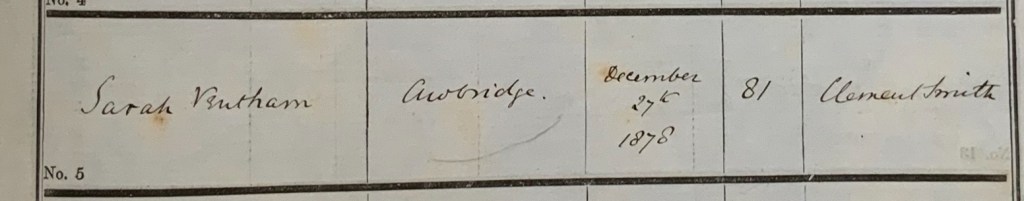 No. 4
Sarah Ventham
Awbridge.
December
27th
1878
81
Clement Smith
No. 5
No. 13